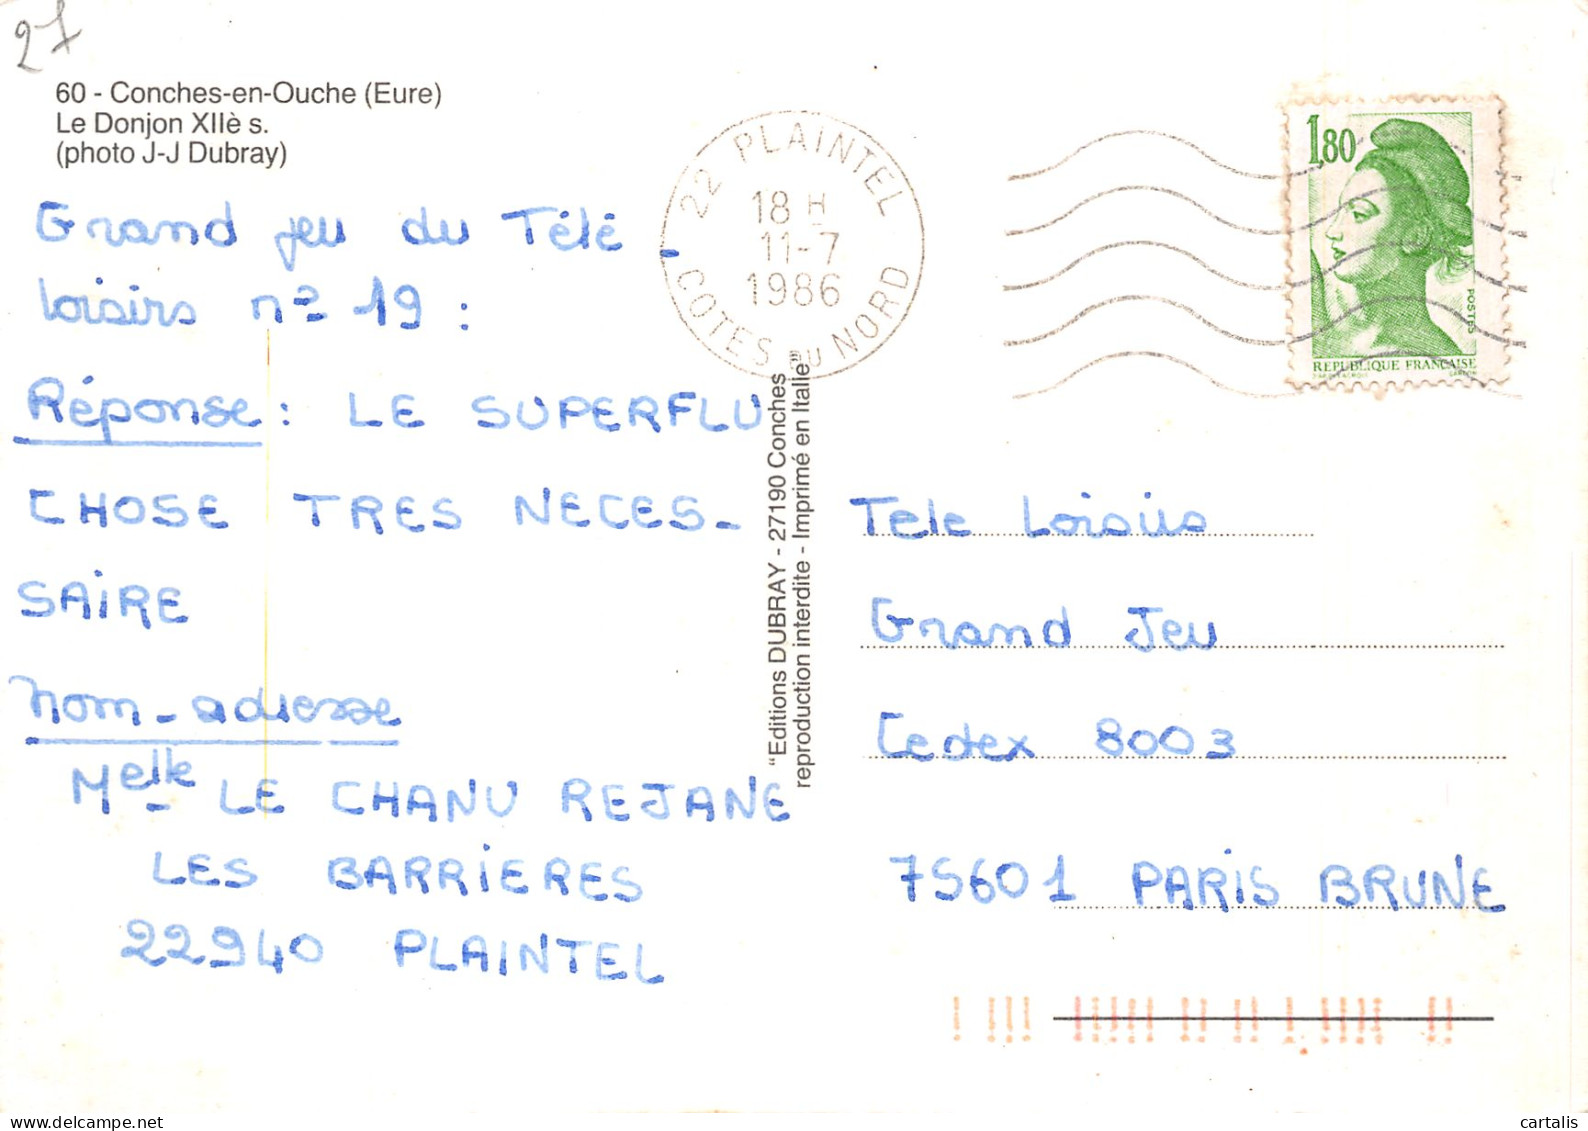 27
60 - Conches-en-Ouche (Eure)
Le Donjon XIIè s.
(photo J-J Dubray)
Grand jeu du Télé -
loisirs nº 19 :
Réponse : LE SUPERFLU
CHOSE TRES NECES-
SAIRE
Nom - adresse
Melle LE CHANU REJANE
LES BARRIERES
22940 PLAINTEL
22 PLAINTEL
18 H
11-7
1986
COTES DU NORD
"Editions DUBRAY - 27190 Conches
reproduction interdite - Imprimé en Italie"
1,80
POSTES
REPUBLIQUE FRANÇAISE
Tele Loisirs
Grand Jeu
Cedex 8003
75601 PARIS BRUNE
cartalis